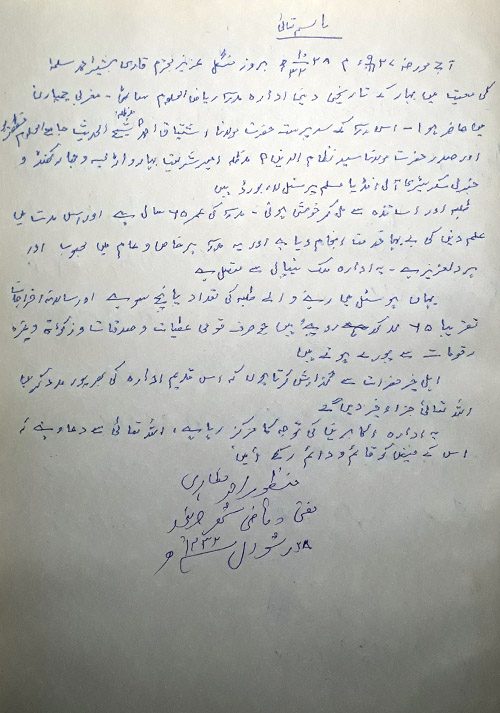 باسمہ تعالیٰ
آج مورخہ ۲۷ م ۲۸ بروز منگل عزیز محترم قاری بشیر احمد سلمہ
کی معیت میں بہار کے تاریخی دینی ادارہ مدرسہ ریاض العلوم ساٹھی مغربی چمپارن
میں حاضر ہوا۔ اس مدرسہ کے سرپرست حضرت مولانا اشتیاق احمد شیخ الحدیث جامع العلوم
اور صدر حضرت مولانا سید نظام الدین مدظلہ امیر شریعت بہار واڑیسہ و جھارکھنڈ و
جنرل سکریٹری آل انڈیا مسلم پرسنل لاء بورڈ ہیں
طلبہ اور اساتذہ سے مل کر خوشی ہوئی۔ مدرسہ کی عمر ۶۵ سال ہے اور اس مدت میں
علم دین کی بے بہا خدمت انجام دیا ہے اور یہ مدرسہ ہر خاص و عام میں محبوب اور
ہر دلعزیز ہے۔ یہ ادارہ ملک نیپال سے متصل ہے
یہاں ہوسٹل میں رہنے والے طلبہ کی تعداد پانچ سو ہے اور سالانہ اخراجات
تقریبا ۶۵ لاکھ روپیہ ہیں جو صرف قومی عطیات و صدقات و زکوٰۃ وغیرہ
رقومات سے پورے ہوتے ہیں
اہل خیر حضرات سے گذارش کرتا ہوں کہ اس قدیم ادارہ کی بھر پور مدد کریں
اللہ تعالیٰ جزاء خیر دیں گے
یہ ادارہ اکابرین کی توجہ کا مرکز رہا ہے، اللہ تعالیٰ سے دعاء ہے کہ
اس کے فیض کو قائم و دائم رکھے آمین
منظور احمد مظاہری
مفتی و قاضی شہر کانپور
۲۸ شوال ۱۴۳۲ھ